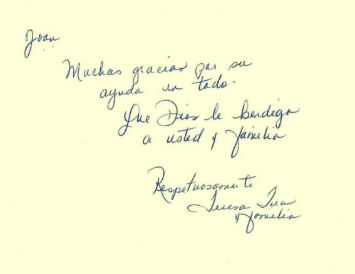 Joan
Muchas gracias por su
ayuda en todo.
Que Dios le bendiga
a usted y familia
Respetuosamente
Teresa
y familia